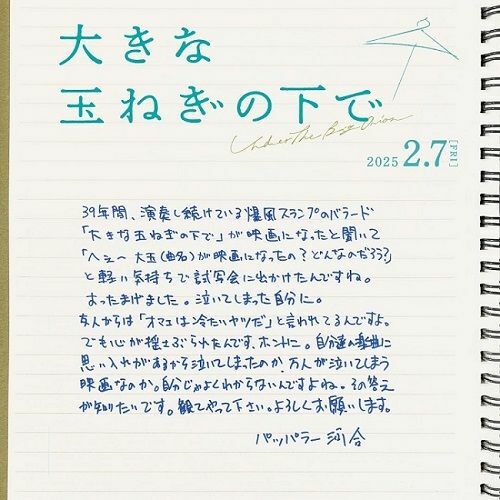 大きな
玉ねぎの下で
Under The Big Onion
2025 2.7 [FRI]
39年間、演奏し続けている爆風スランプのバラード
「大きな玉ねぎの下で」が映画になったと聞いて
「へぇ〜大玉(曲名)が映画になったの?どんなのだろう?」
と軽い気持ちで試写会に出かけたんですね。
おったまげました。泣いてしまった自分に。
友人からは「オマエは冷たいヤツだ」と言われてるんですよ。
でも心が揺さぶられたんです、ホントに。自分達の楽曲に
思い入れがあるから泣いてしまったのか 万人が泣いてしまう
映画なのか。自分じゃよくわからないんですよね。その答え
が知りたいです。観てやって下さい。よろしくお願いします。
パッパラー河合